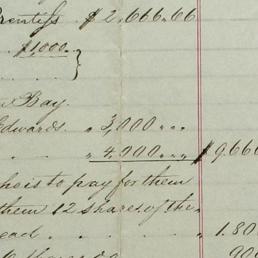 rentiss $2,666.66
$1000
Bay.
Edwards " 3,000 " "
" 4,000 " " $9,666
who is to pay for them
them 12 shares of the
ead 1.80
900